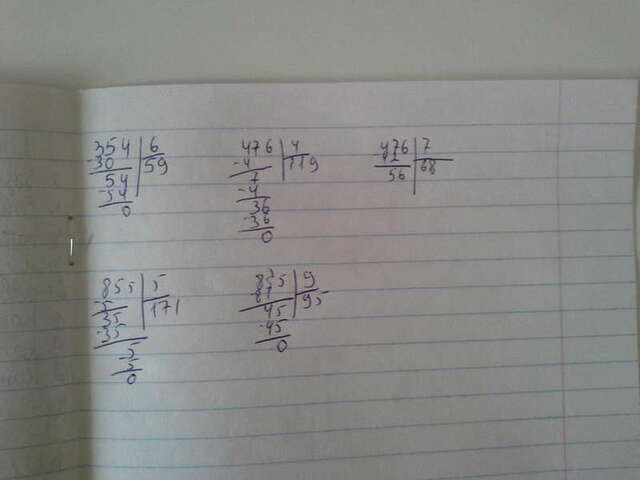 354 6
-30 59
54
-54
0
476 4
-4 119
7
-4
36
-36
0
476 7
56 68
855 5
-5 171
35
-35
5
5
0
855 9
-81 95
45
-45
0